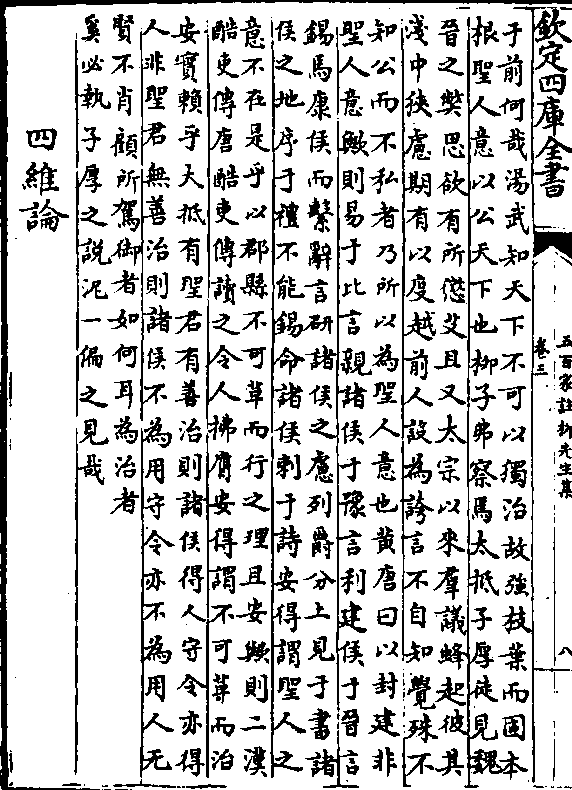 欽定四庫全書
五百家註柳先生集
卷三
八
于前何哉湯武知天下不可以獨治故強枝葉而固本
根聖人意以公天下也柳子弗察焉大抵子厚徒見魏
晉之弊思欲有所懲艾且又太宗以來羣議蜂起彼其
淺中狹慮期有以度越前人設為誇言不自知覺殊不
知公而不私者乃所以為聖人意也黄唐曰以封建非
聖人意歟則易于比言親諸侯于豫言利建侯于晉言
錫馬康侯而繫辭言研諸侯之慮列爵分土見于書諸
侯之地序于禮不能錫命諸侯刺于詩安得謂聖人之
意不在是乎以郡縣不可革而行之理且安歟則二漢
酷吏傳唐酷吏傳讀之令人拂膺安得謂不可革而治
安實賴乎大抵有聖君有善治則諸侯得人守令亦得
人非聖君無善治則諸侯不為用守令亦不為用人无
賢不肖顧所駕御者如何耳為治者
奚必執子厚之説泥一偏之見哉
四維論